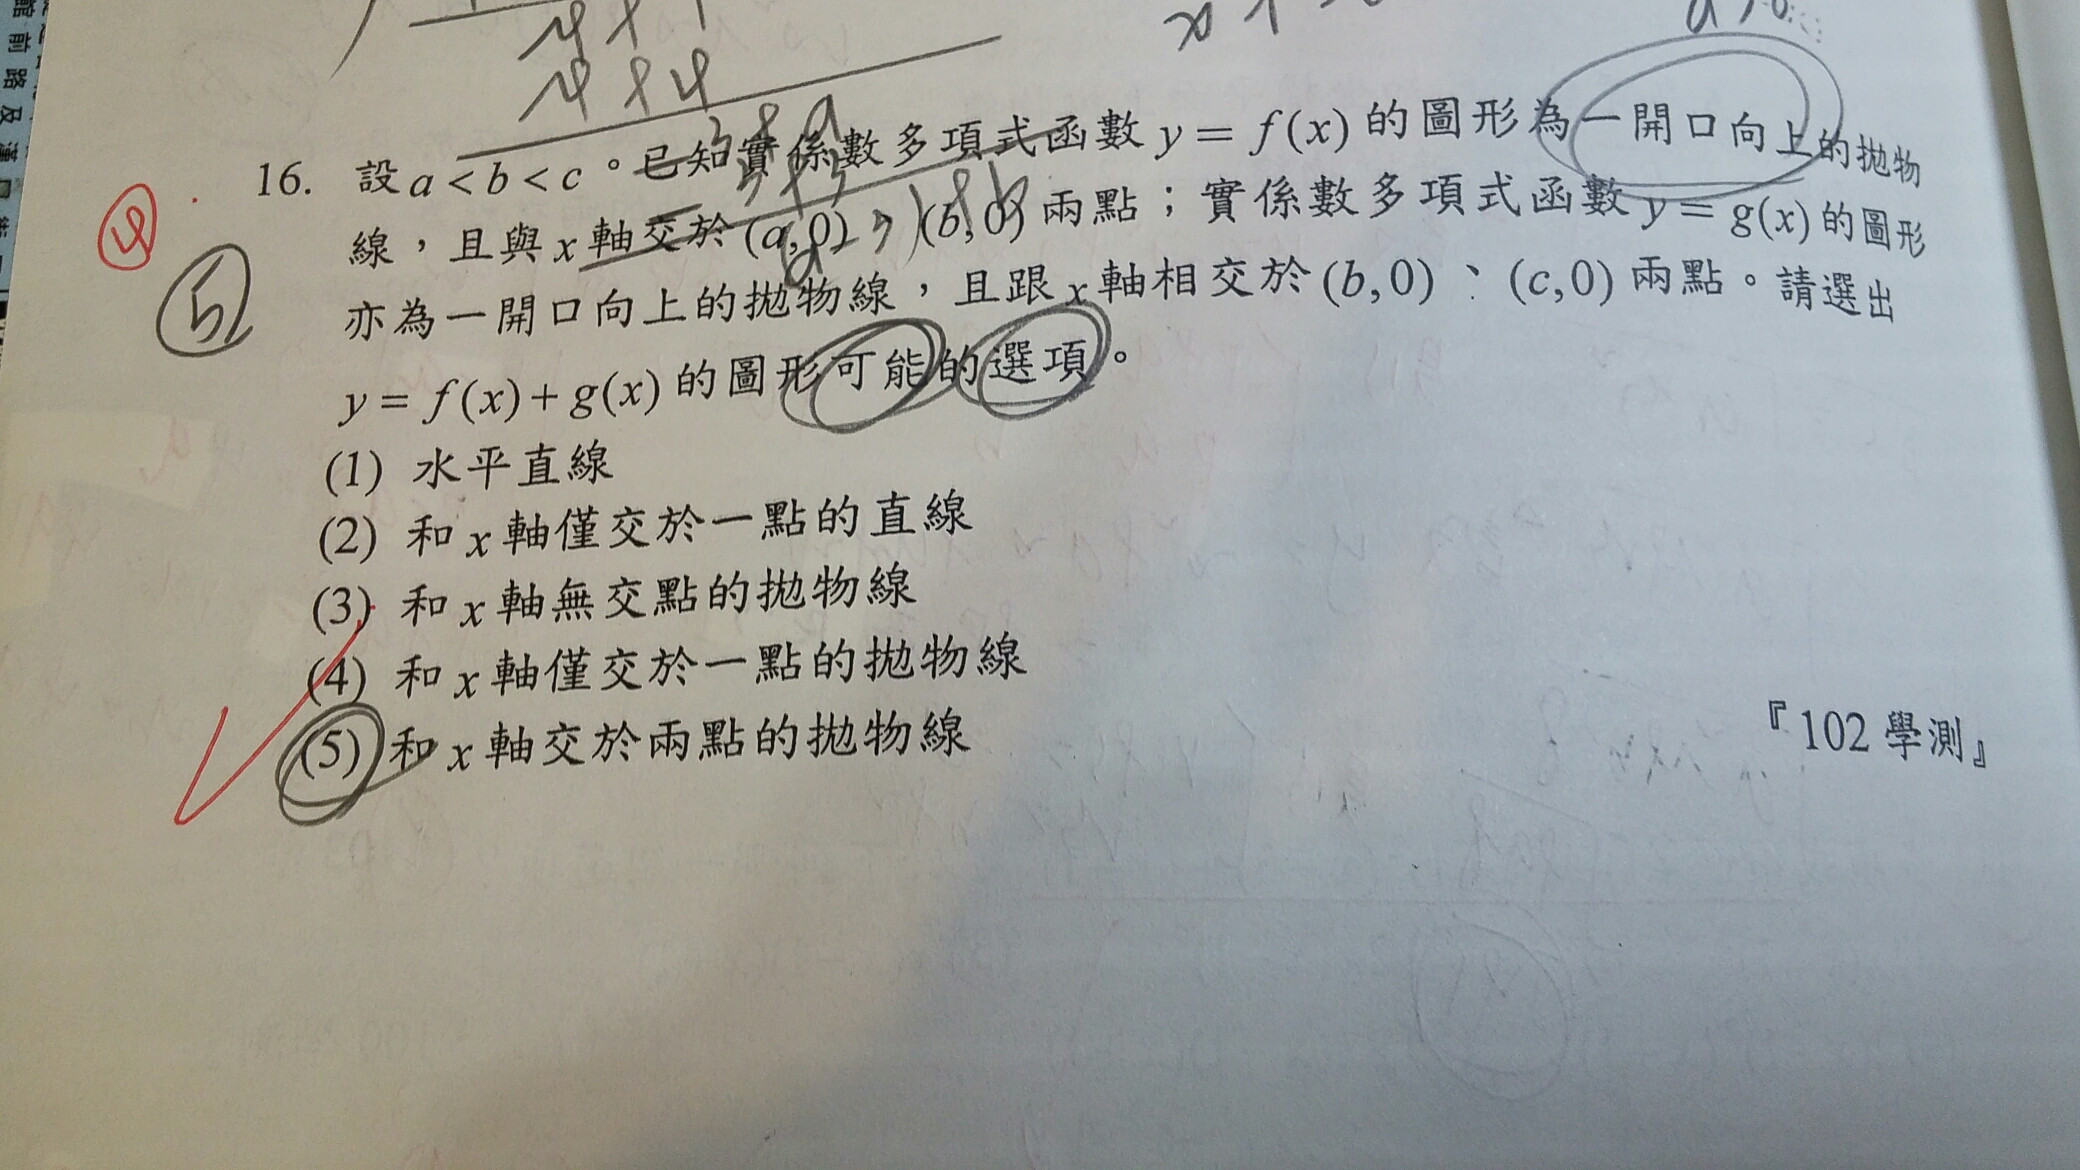 16. 設 a < b < c。已知實係數多項式函數 y = f(x) 的圖形為一開口向上的拋物
線，且與 x 軸交於 (a, 0)、(b, 0) 兩點；實係數多項式函數 y = g(x) 的圖形
亦為一開口向上的拋物線，且跟 x 軸相交於 (b, 0)、(c, 0) 兩點。請選出
y = f(x) + g(x) 的圖形可能的選項。
(1) 水平直線
(2) 和 x 軸僅交於一點的直線
(3) 和 x 軸無交點的拋物線
(4) 和 x 軸僅交於一點的拋物線
(5) 和 x 軸交於兩點的拋物線
『102 學測』
4
5